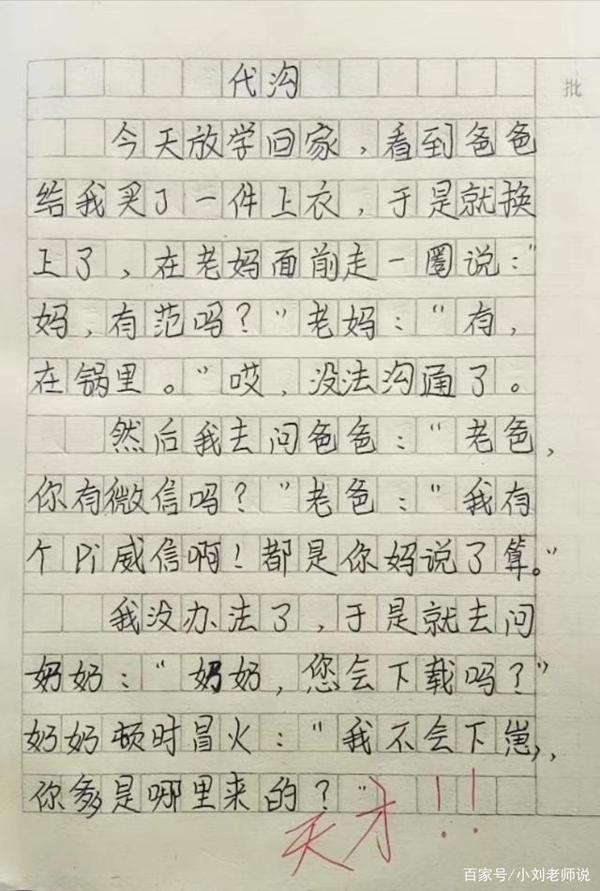 代沟
批
今天放学回家，看到爸爸
给我买了一件上衣，于是就换
上了，在老妈面前走一圈说：“
妈，有范吗？”老妈：“有，
在锅里。”哎，没法沟通了。
然后我去问爸爸：“老爸，
你有微信吗？”老爸：“我有
个Pi威信啊！都是你妈说了算。”
我没办法了，于是就去问
奶奶：“奶奶，您会下载吗？”
奶奶顿时冒火：“我不会下崽，
你爹是哪里来的？”
天才！！
百家号/小刘老师说